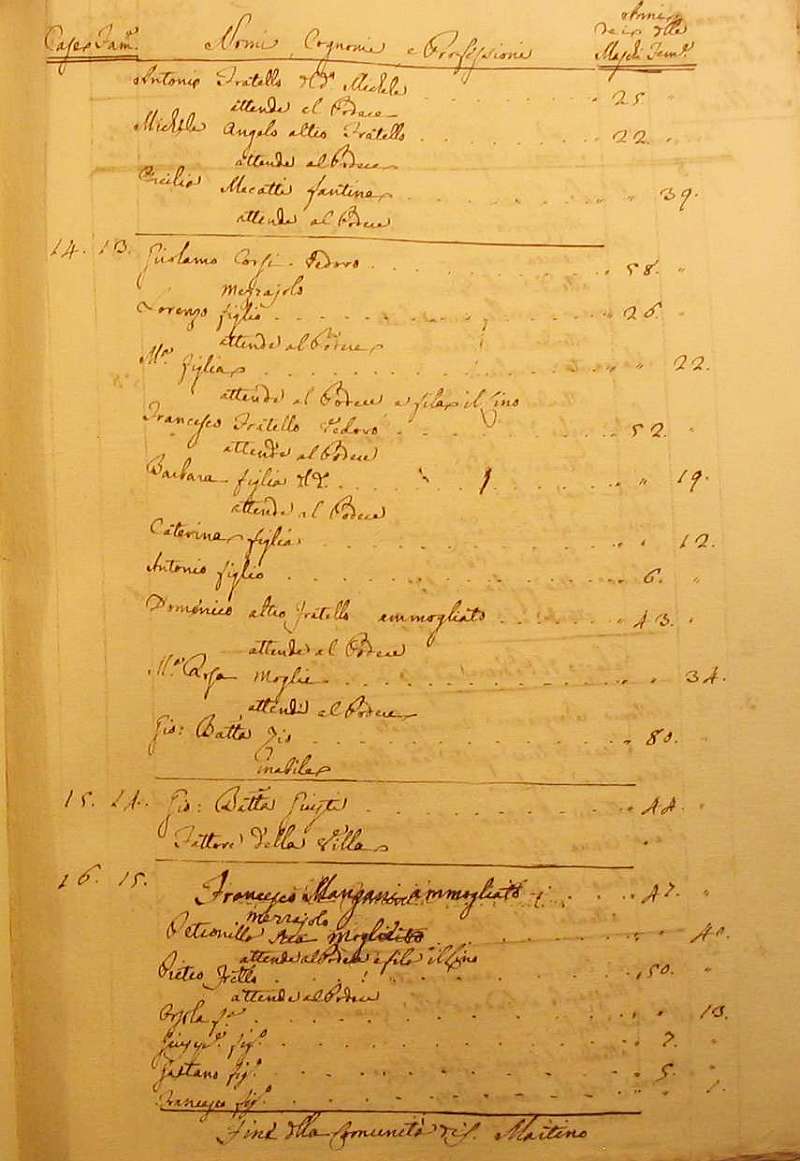 Case Fam.e Nomi, Cognomi e Professioni Anni de i e delle Maschi Fem.e
Antonio Fratello di d.o Michele 25 "
attende al Podere
Michele Angelo altro Fratello 22 "
attende al Podere
Cecilia Mecatti fantina " 39.
attende al Podere
14. 13. Girolamo Corsi Vedovo 58. "
Mezzajolo
Lorenzo figlio 26 "
attende al Podere
M.a figlia " 22.
attende al Podere e fila il Lino
Francesco Fratello Vedovo 52. "
attende al Podere
Barbara figlia di d.o " 19.
attende al Podere
Caterina figlia " 12.
Antonio figlio 6. "
Domenico altro Fratello ammogliato 43. "
attende al Podere
M.a Rosa Moglie " 34.
attende al Podere
Gio: Batta Zio 80. "
inabile
15. 14. Gio: Batta Giusti 44. "
Fattore della Villa
16. 15. Francesco Mangani ammogliato 47. "
Mezzajolo
Petronilla Sua Moglie " 40.
attende al Podere e fila il Lino
Pietro Fratello 50. "
attende al Podere
Orsola f.a " 13.
Giusep.e fig.o 7. "
Gaetano fig.o 5. "
Francesco fig.o " 1.
Fine della Comunità di S. Martino